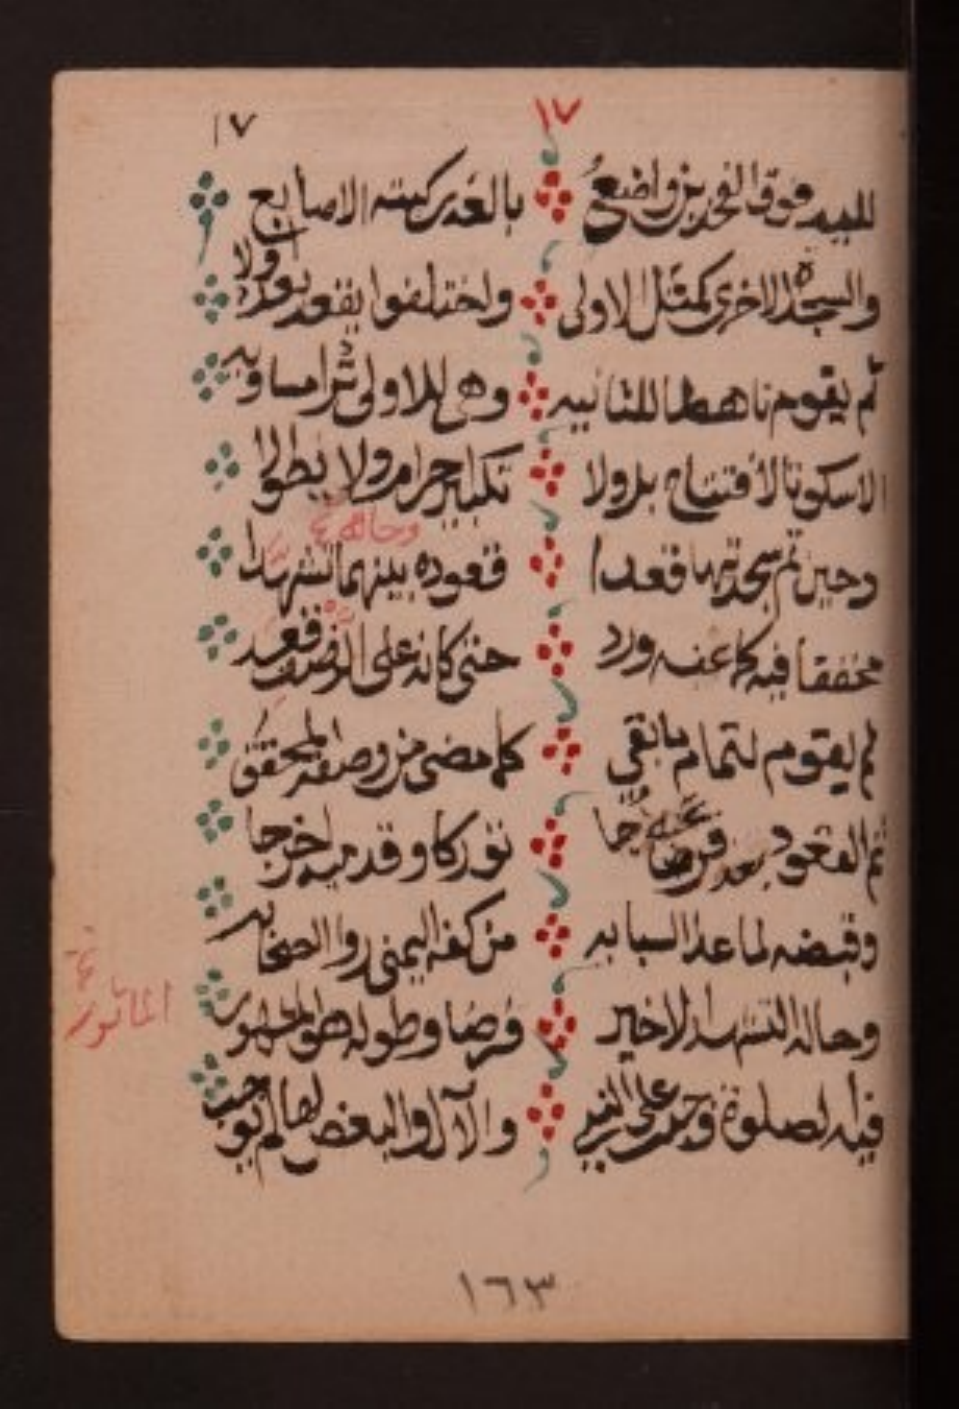 ١٧ ١٧
لليد فوق الفخذين واضعُ بالغد ركبته الاصابع
والسجدة الاخرى كمثل الاولى واختلفوا يقعد بعد اولا
ثم يقوم ناهضا للثانيه وهي للاولى ثم امساويه
الا سكوتا لافتتاح بل ولا تكبير احرام ولا يطولا
وحاله
وحين تم سجدتيها قعدا قعوده بينهما تشهدا
مخففا فيه كما عنه ورد حتى كانه على الرضف قعد
ثم يقوم لتمام ما بقي كما مضى من وصفه المحقق
ثم القعود بعد فرضا نوركا وقدميه اخرجا
وقبضه لما عدا السبابه من كفه اليمنى روا الصحابه
وحاله التشهد الاخير فرضا وطوله هو المشهور
الماثور
فيه الصلوة وجبت على النبي والآل والبعض لها لم يوجب
١٦٣